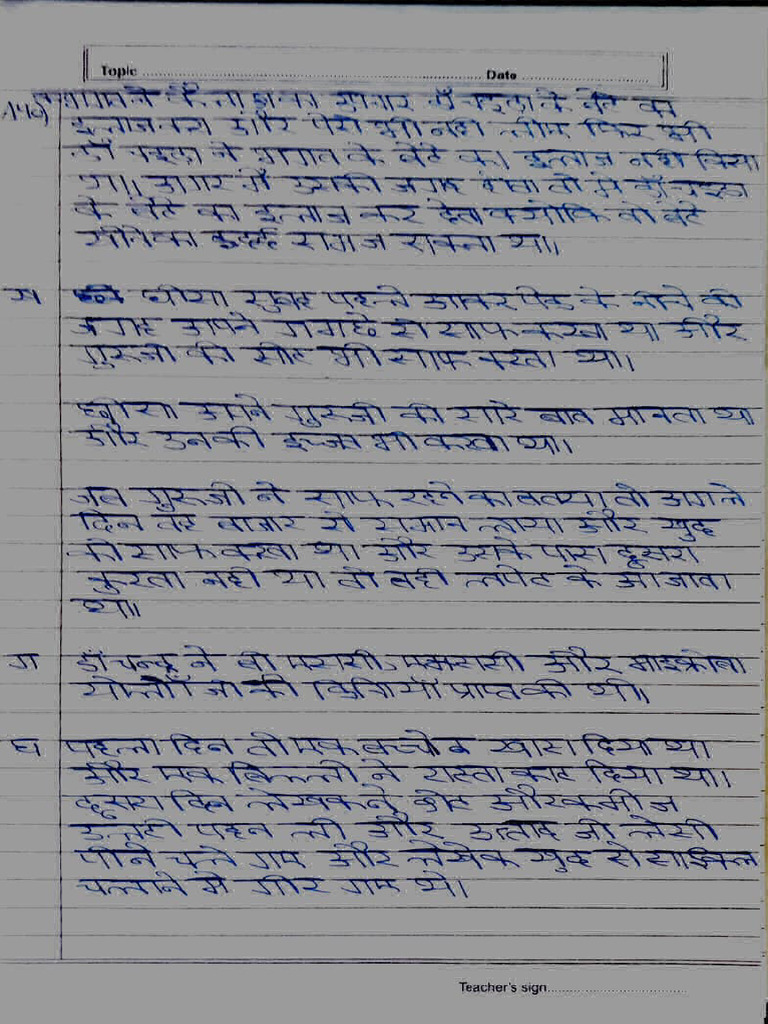 Topic ........ Date ........
14क) भगत ने कैलाश का
इलाज करा और पैसे भी नही लीए फिर भी
डॉ चड्ढा ने भगत के बेटे का इलाज नही किया
था। अगर मै उसकी जगह होता तो मै डॉ चड्ढा
के बेटे का इलाज कर देता क्योकि वो बेटे
खोने का समाज सकता था।
ख घीसा सुबह पहले आकर पेड के नीचे की
जगह अपने गमछे से साफ करता था और
गुरुजी की सीट भी साफ करता था।
घीसा अपने गुरुजी की सारे बात मानता था
और उनकी इज्जत भी करता था।
जब गुरुजी ने साफ रहने का बताया तो अगले
दिन वह बाजार से सामान लाया और खुद
को साफ करता था और उसके पास दूसरा
कुरता नही था तो वही लपेट के आ जाता
था।
ग डॉ चन्द्रा ने बी एससी, एमएससी और माइक्रोबा
की डिग्रियाँ प्राप्त की थी।
घ पहला दिन तो एक बच्चे ने दिया था
और एक बिल्ली ने रास्ता काट दिया था।
दूसरा दिन लेखक ने कोट और कमीज
उलटी पहन ली और उस्ताद जी लस्सी
पीने चले गए और लेखक खुद से साइकिल
चलाने मे गीर गए थे।
Teacher's sign........